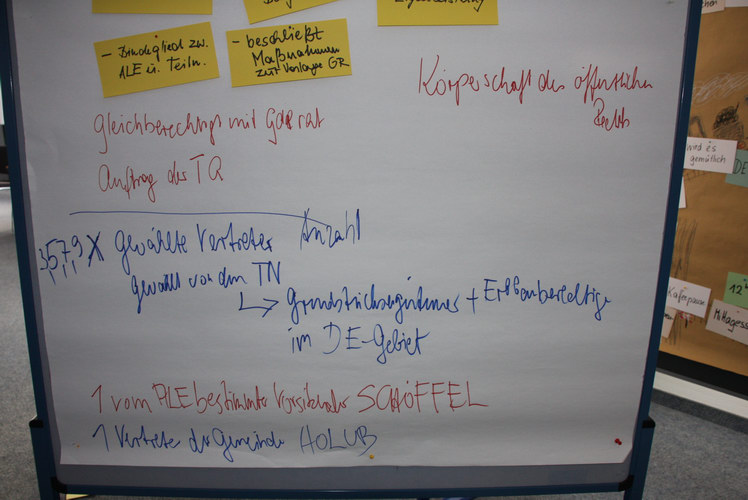 - Bindeglied zw.
ALE u. Teiln.
- beschließt
Maßnahmen
zur Vorlage GR
Körperschaft des öffentlichen
Rechts
gleichberechtigt mit
Auftrag der TG
3,5,7,9 X gewählte Vertreter Anzahl
gewählt von den TN
→ Grundstückseigentümer + Erbbauberechtigte
im DE-Gebiet
1 vom ALE bestimmter Vorsitzender SCHÖFFEL
1 Vertreter der Gemeinde HOLUB
wird es
gemütlich
DE
12
Kaffeepause
Mittagess